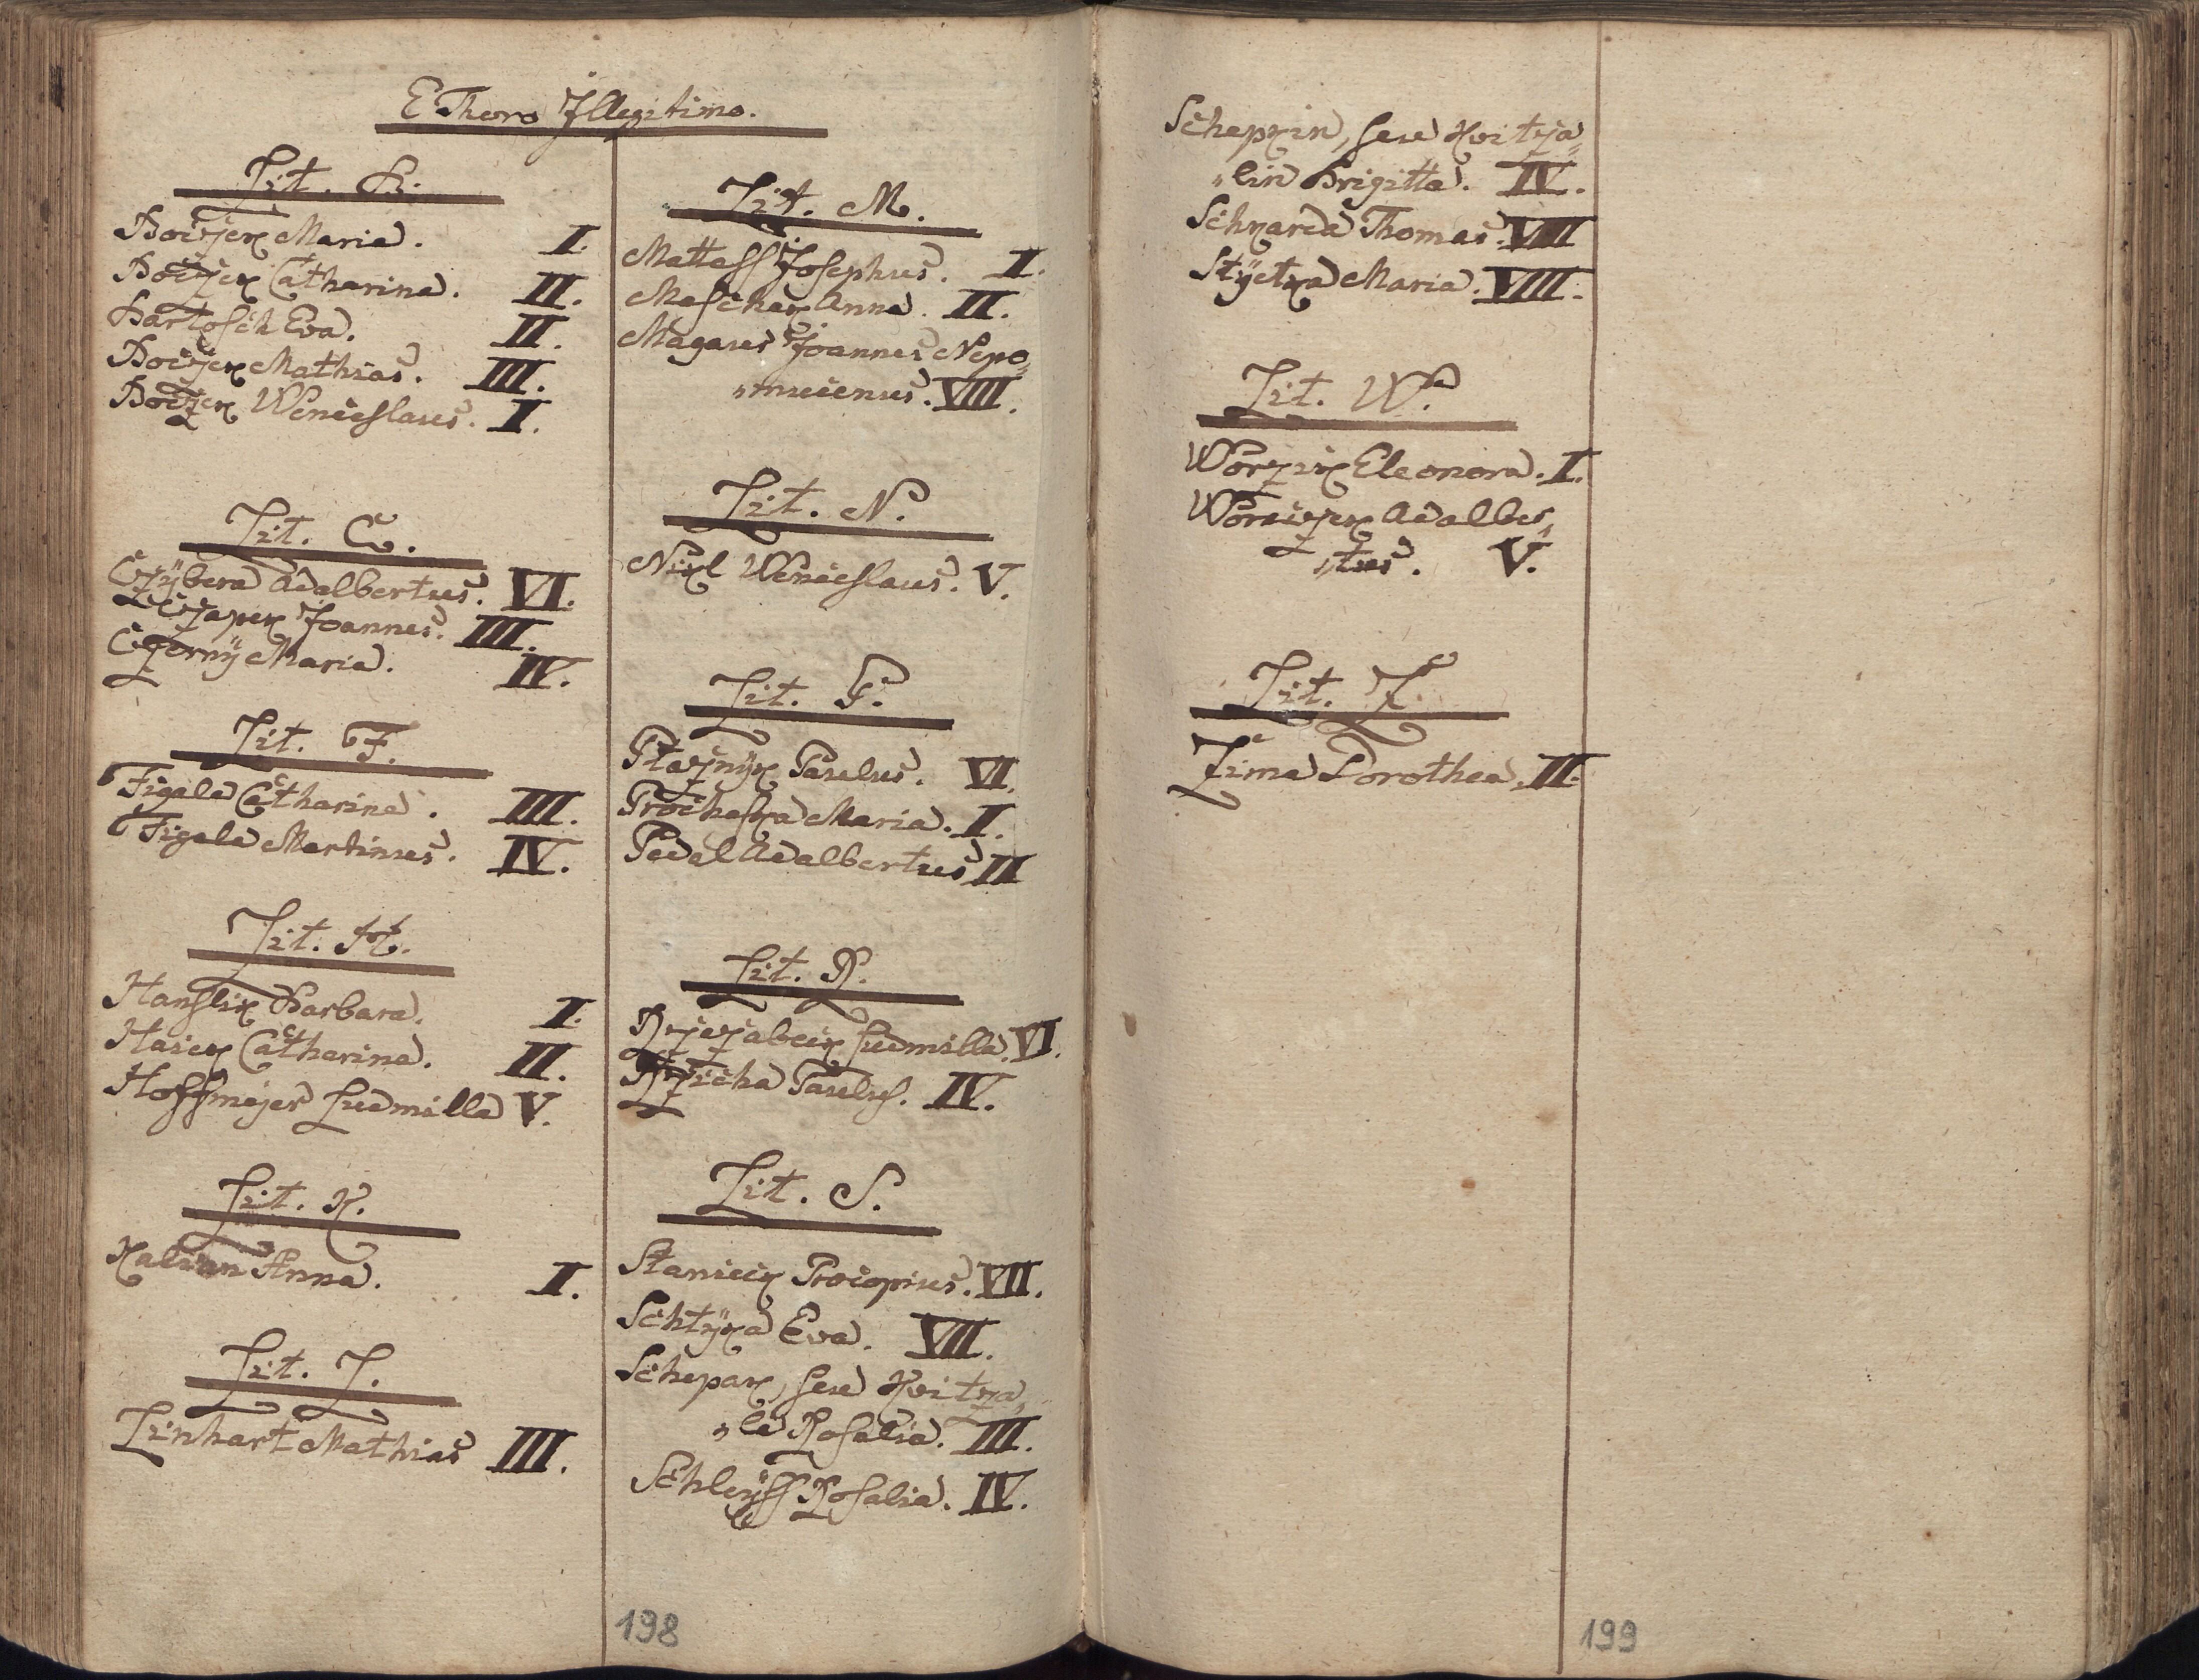 E Thoro Illegitimo.
Lit. B.
Boczek Maria. I.
Boczek Catharina. II.
Bartosch Eva. II.
Boczek Mathias. III.
Boczek Wenceslaus. I.
Lit. C.
Czÿbera Adalbertus. VI.
Czapek Joannes. III.
Czernÿ Maria. IV.
Lit. F.
Figala Catharina. III.
Figala Martinus. IV.
Lit. H.
Hanslik Barbara. I.
Hasek Catharina. II.
Hoffmajer Ludmilla V.
Lit. K.
Kalivan Anna. I.
Lit. L.
Linhart Mathias III.
Lit. M.
Mattess Josephus. I.
Maschek Anna. II.
Magaur Joannes Nepo„
„mucenus. VIII.
Lit. N.
Nikl Wenceslaus. V.
Lit. P.
Ptacznÿk Paulus. VI.
Prochaska Maria. I.
Pedal Adalbertus II
Lit. R.
Rzerzabek Ludmilla. VI.
Rzicha Paulus. IV.
Lit. S.
Staniek Procopius. VII.
Schtÿka Eva. VII.
Schepak, seu Kvitza„
„la Rosalia. III.
Schleÿss Rosalia. IV.
198
Schepkin, seu Kvitza„
„lin Brigitta. IV.
Schkarda Thomas. VIII
Stÿctka Maria. VIII.
Lit. W.
Worzik Eleonora. I.
Woraczek Adalber„
„tus. V.
Lit. Z.
Zima Dorothea. II.
199